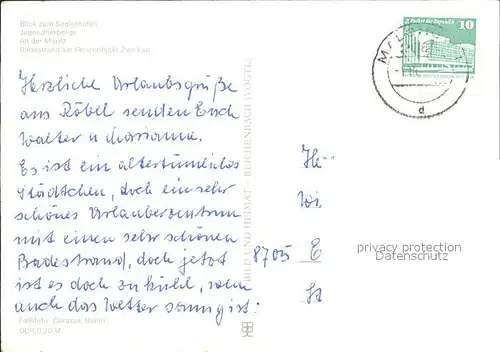 Blick zum Seglerhafen
Jugendherberge
An der Müritz
Badestrand am Ferienobjekt Zwickau
10
d
Herzliche Urlaubsgrüße
aus Röbel senden Euch
Walter u Marianne.
Es ist ein altertümliches
Städtchen, doch ein sehr
schönes Urlauberzentrum
mit einen sehr schönen
Badestrand, doch jetzt
ist es doch zu kühl, wenn
auch das Wetter sonnig ist.
BILD UND HEIMAT REICHENBACH (VOGTL)
He
Wi
8705 E
St
privacy protection
Datenschutz
Farbfoto: Darazs, Berlin
DDR 0,20 M